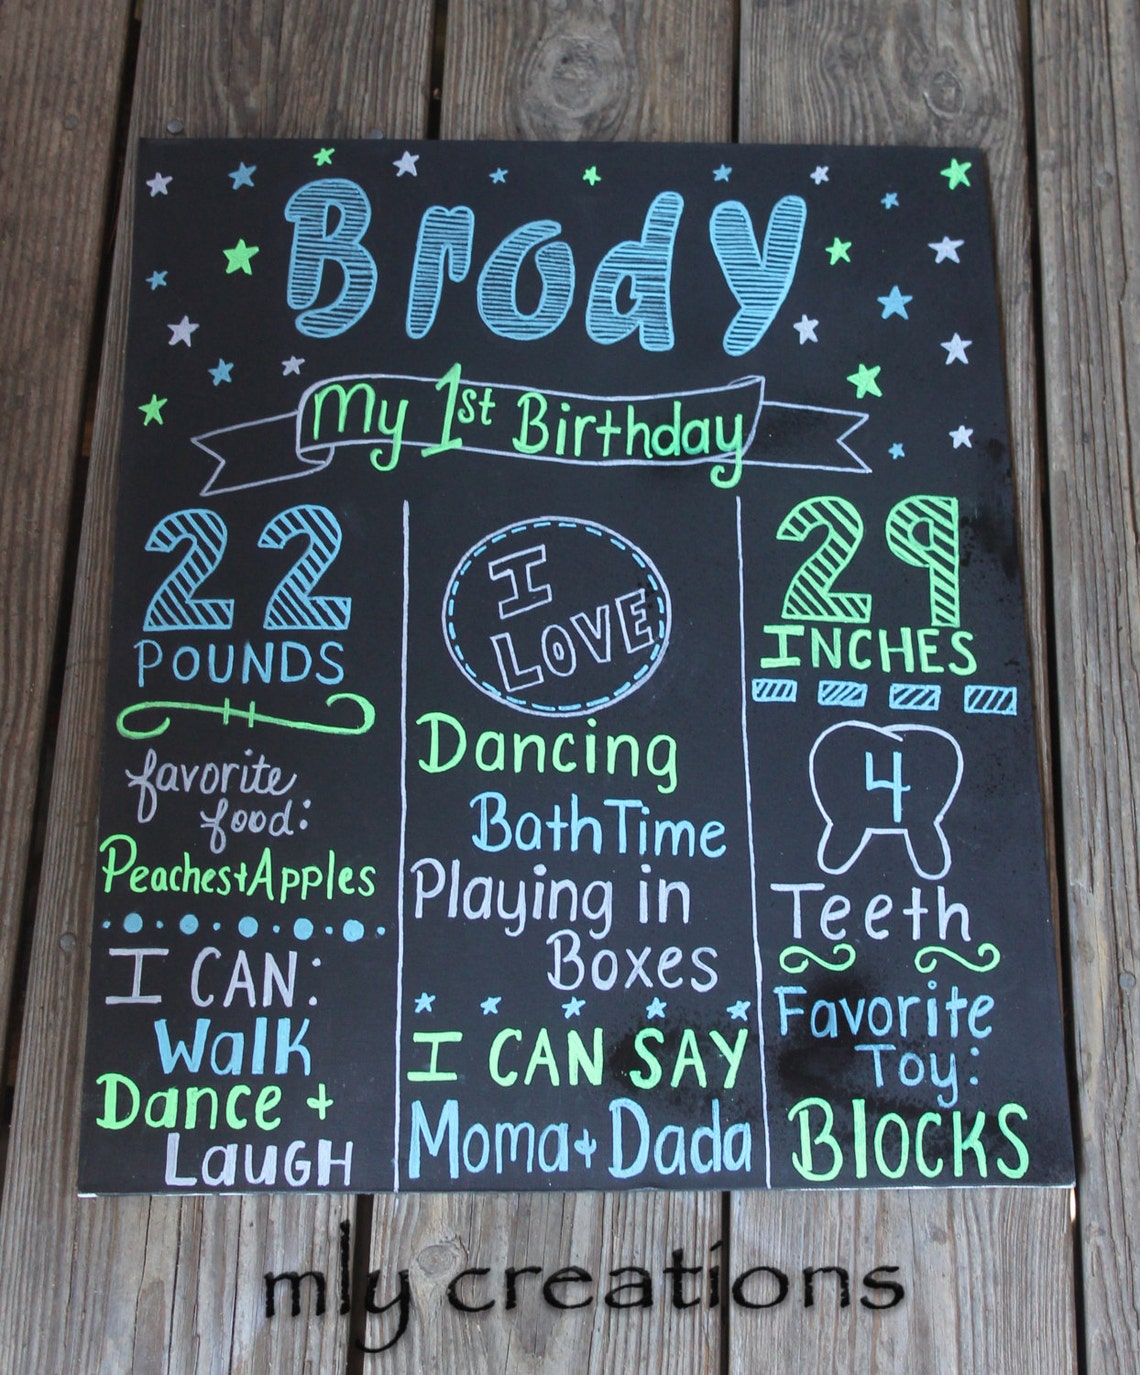 Brody
My 1st Birthday
22
POUNDS
favorite
food:
Peaches+Apples
I CAN:
Walk
Dance +
LAUGH
I
LOVE
Dancing
BathTime
Playing in
Boxes
I CAN SAY
Moma + Dada
29
INCHES
4
Teeth
Favorite
Toy:
Blocks
mly creations